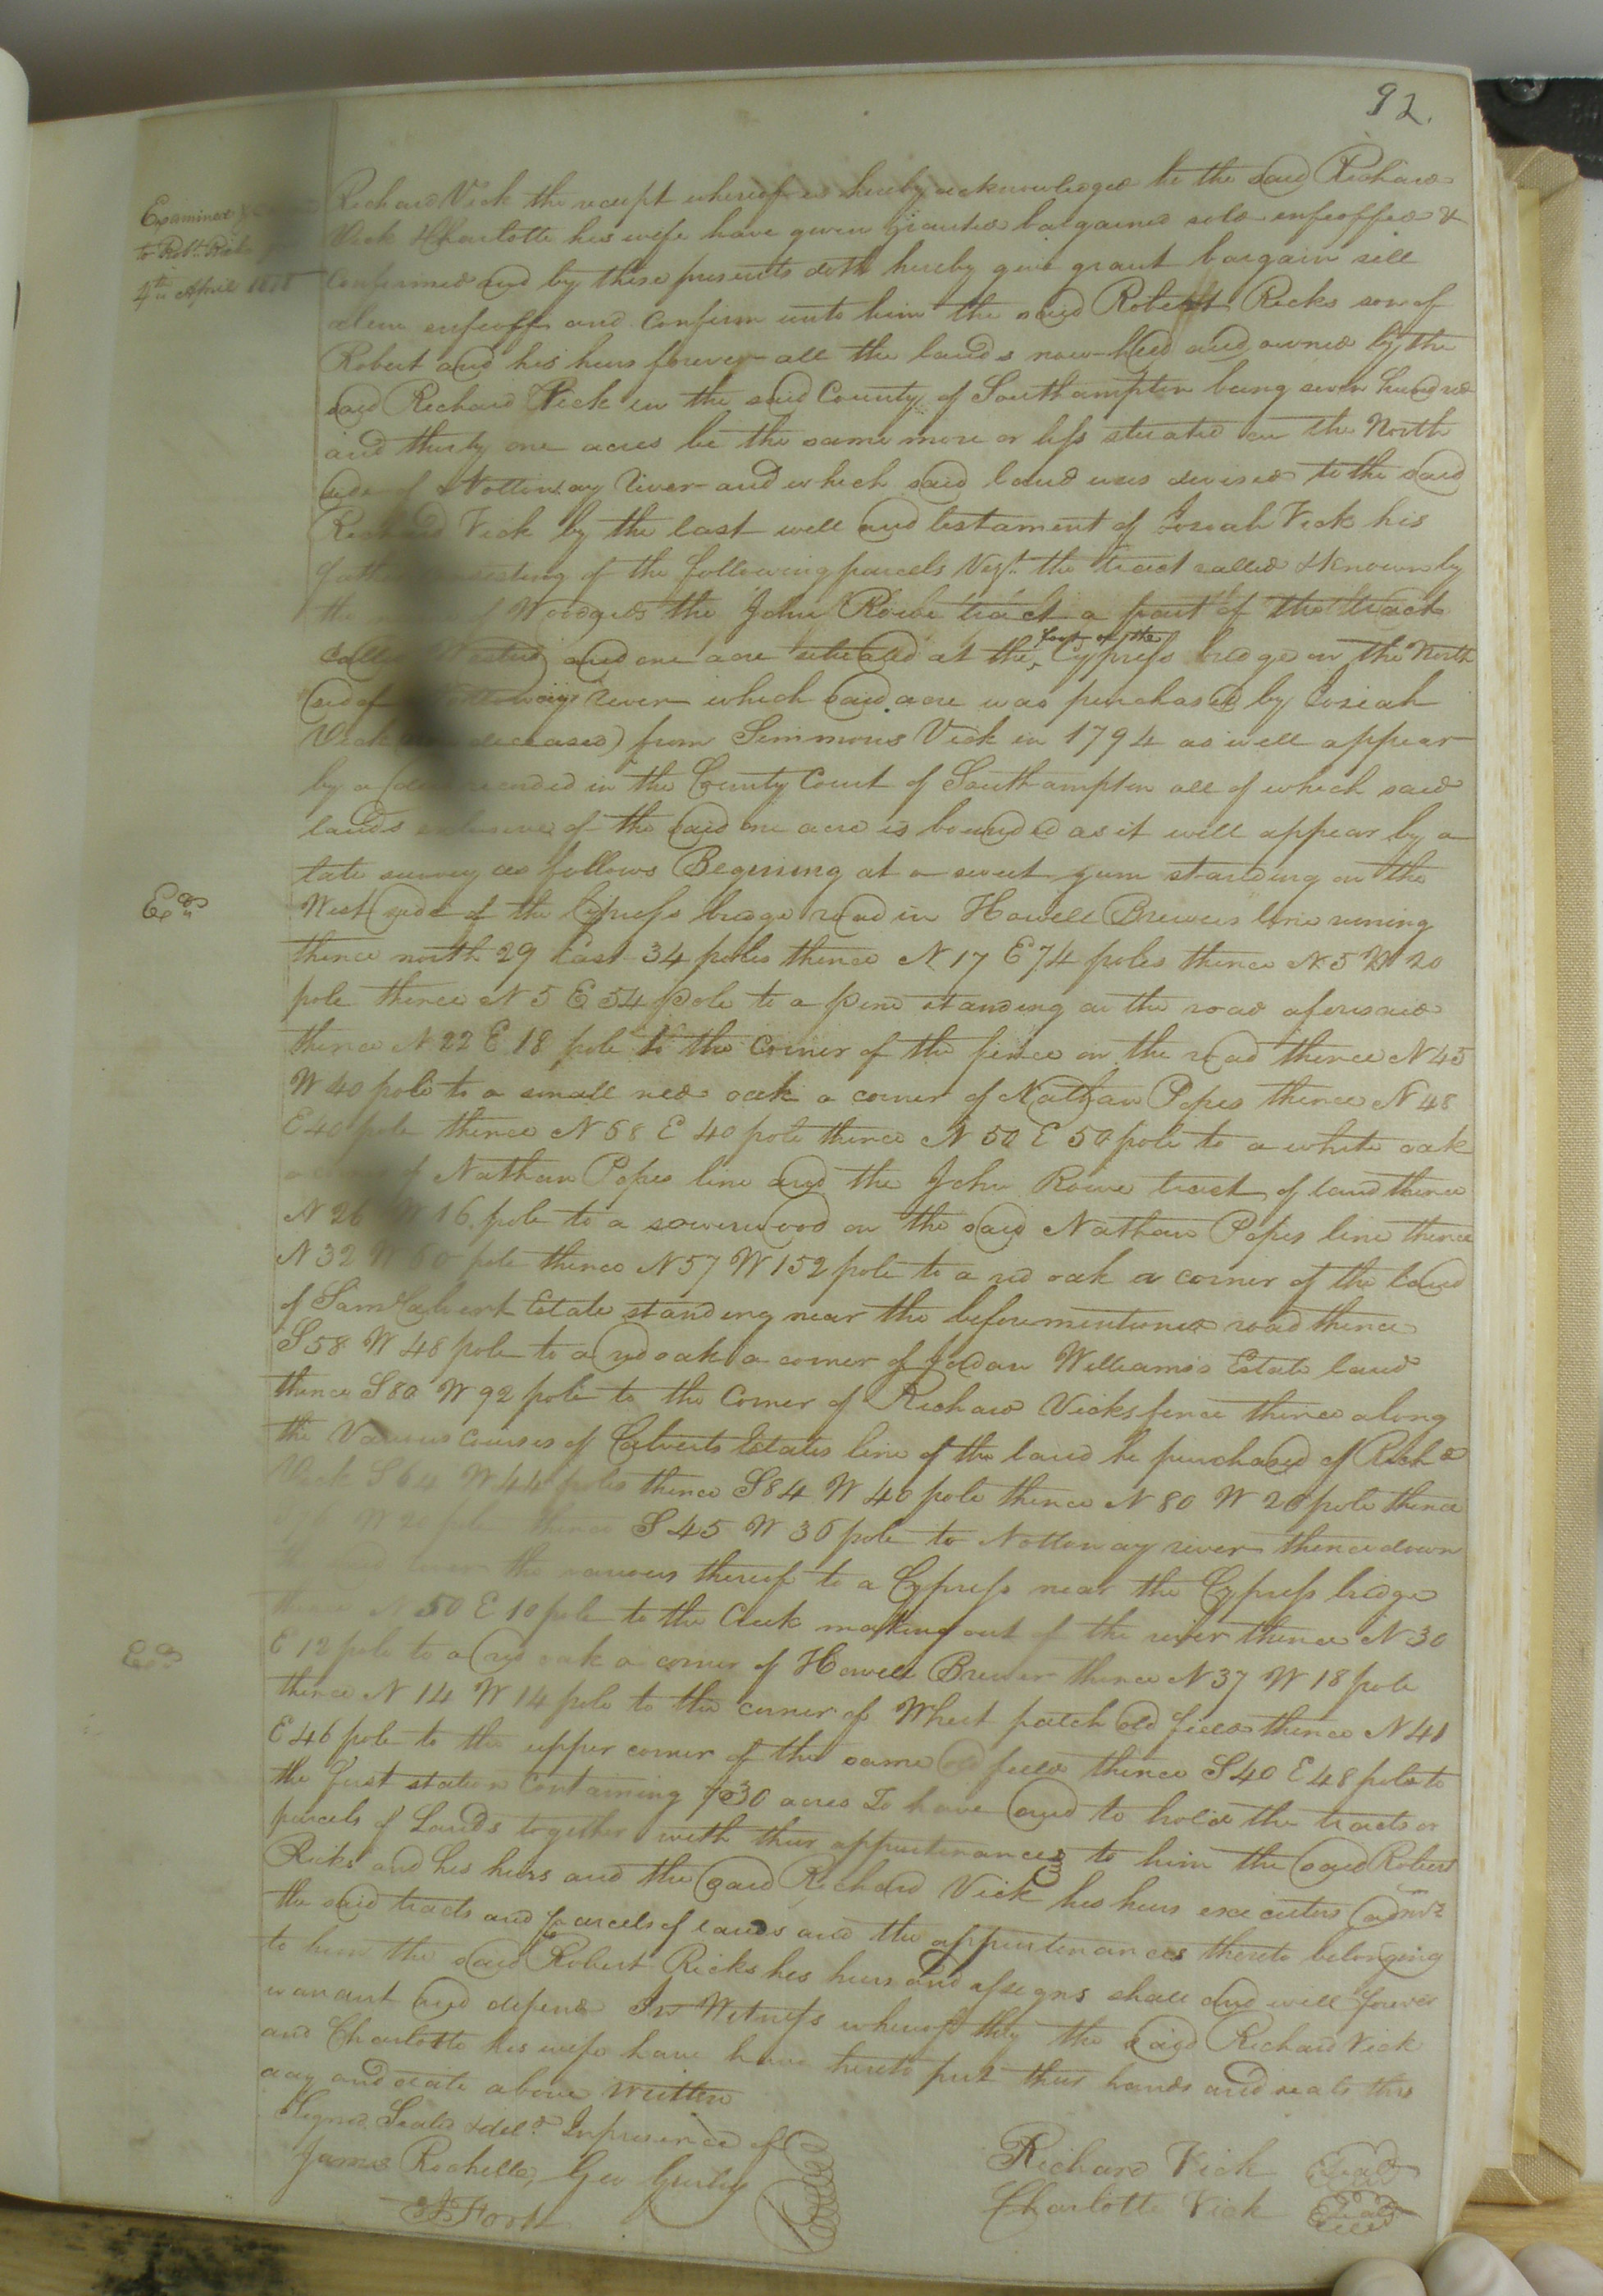 92.
Examined &
to Robt. Ricks
4th April 1818
Richard Vick the receipt whereof is hereby acknowledged he the said Richard
Vick & Charlotte his wife have given granted bargained sold enfeoffed &
Confirmed and by these presents doth hereby give grant bargain sell
alien enfeoff and Confirm unto him the said Robert Ricks son of
Robert and his heirs forever all the lands now held and owned by the
said Richard Vick in the said County of Southampton being seven hundred
and thirty one acres be the same more or less situated on the North
side of Nottoway River and which said land was devised to the said
Richard Vick by the last will and testament of Josiah Vick his
father consisting of the following parcels Vizt. the tract called & known by
the of the John Rowe tract a part of the tract
called and one acre situated at the foot of the Cypress bridge on the North
side of Nottoway River which said acre was purchased by Josiah
Vick deceased) from Simmons Vick in 1794 as will appear
by a deed recorded in the County Court of Southampton all of which said
lands exclusive of the said one acre is bounded as it will appear by a
late survey as follows Begining at a sweet gum standing on the
Exd.
West side of the Cypress bridge road in Howell Brewers line runing
thence north 29 East 34 poles thence N 17 E 74 poles thence N 5 W 20
pole thence N 5 E 54 pole to a pine standing on the road aforesaid
thence N 22 E 18 pole to the Corner of the fence on the road thence N 45
W 40 pole to a small red oak a corner of Nathan Popes thence N 48
E 40 pole thence N 68 E 40 pole thence N 50 E 50 pole to a white oak
a corner of Nathan Popes line and the John Rowe tract of land thence
N 26 W 16 pole to a sowerwood on the said Nathan Popes line thence
N 32 W 60 pole thence N 57 W 152 pole to a red oak a corner of the land
of Saml Calvert Estate standing near the beforementioned road thence
S 58 W 48 pole to a red oak a corner of Jordan Williams's Estate land
thence S 80 W 92 pole to the Corner of Richard Vicks fence thence along
the Various courses of Calverts Estates line of the land he purchased of Richd
Vick S 64 W 44 poles thence S 84 W 40 pole thence N 80 W 20 pole thence
W 20 pole thence S 45 W 36 pole to Nottoway river thence down
the said river the various thereof to a Cypress near the Cypress bridge
thence N 50 E 10 pole to the Creek making out of the river thence N 30
Exd.
E 12 pole to a red oak a corner of Howell Brewer thence N 37 W 18 pole
thence N 14 W 14 pole to the corner of Wheet patch old field thence N 41
E 46 pole to the upper corner of the same old field thence S 40 E 48 pole to
the first station Containing 730 acres To have and to hold the tracts or
parcels of Lands together with their appurtenances to him the said Robert
Ricks and his heirs and the said Richard Vick his heirs executers admrs
the said tracts and parcels of lands and the appurtenances thereto belonging
to him the said Robert Ricks his heirs and assigns shall and will forever
warrant and defend In Witness whereof they the said Richard Vick
and Charlotte his wife have have hereto put their hands and seals this
day and date above written
Signed Sealed & deld. In presence of
James Rochelle, Geo Gurley
Richard Vick Seal
Charlotte Vick Seal